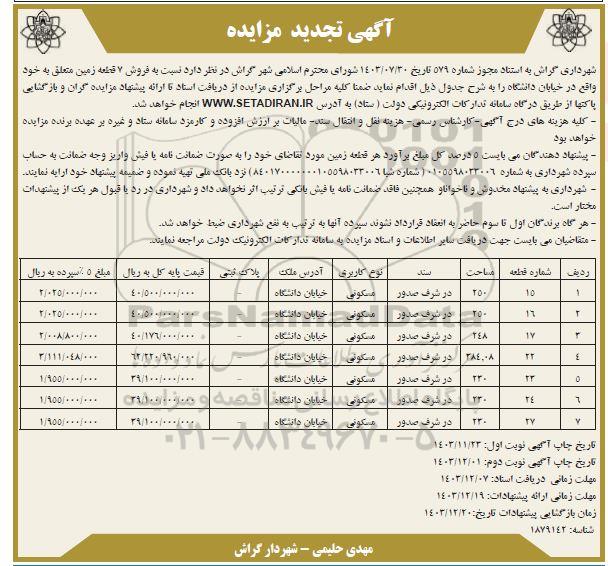 آگهی تجدید مزایده
شهرداری گراش به استناد مجوز شماره ۵۷۹ تاریخ ۱۴۰۳/۰۷/۳۰ شورای محترم اسلامی شهر گراش در نظر دارد نسبت به فروش ۷ قطعه زمین متعلق به خود
واقع در خیابان دانشگاه را به شرح جدول ذیل اقدام نماید ضمنا کلیه مراحل برگزاری مزایده از دریافت اسناد تا ارائه پیشنهاد مزایده گران و بازگشایی
پاکتها از طریق درگاه سامانه تدارکات الکترونیکی دولت ( ستاد) به آدرس WWW.SETADIRAN.IR انجام خواهد شد.
- کلیه هزینه های درج آگهی-کارشناس رسمی- هزینه نقل و انتقال سند- مالیات بر ارزش افزوده و کارمزد سامانه ستاد و غیره بر عهده برنده مزایده
خواهد بود
- پیشنهاد دهندگان می بایست ۵ درصد کل مبلغ برآورد هر قطعه زمین مورد تقاضای خود را به صورت ضمانت نامه یا فیش واریز وجه ضمانت به حساب
سپرده شهرداری به شماره ۰۱۰۵۵۹۸۰۳۳۰۰۶ ( شماره شبا ۸۴۰۱۷۰۰۰۰۰۰۰۱۰۵۵۹۸۰۳۳۰۰۶) نزد بانک ملی تهیه نموده و ضمیمه پیشنهاد خود ارایه نمایند.
- شهرداری به پیشنهاد مخدوش و ناخواناو همچنین فاقد ضمانت نامه یا فیش بانکی ترتیب اثر نخواهد داد و شهرداری در رد یا قبول هر یک از پیشنهادات
مختار است.
- هر گاه برندگان اول تا سوم حاضر به انعقاد قرارداد نشوند سپرده آنها به ترتیب به نفع شهرداری ضبط خواهد شد.
- متقاضیان می بایست جهت دریافت سایر اطلاعات و اسناد مزایده به سامانه تدارکات الکترونیک دولت مراجعه نمایند.
ردیف شماره قطعه مساحت سند نوع کاربری آدرس ملک پلاک ثبتی قیمت پایه کل به ریال مبلغ ۵ ٪سپرده به ریال
۱ ۱۵ ۲۵۰ در شرف صدور مسکونی خیابان دانشگاه - ۴۰/۵۰۰/۰۰۰/۰۰۰ ۲/۰۲۵/۰۰۰/۰۰۰
۲ ۱۶ ۲۵۰ در شرف صدور مسکونی خیابان دانشگاه - ۴۰/۵۰۰/۰۰۰/۰۰۰ ۲/۰۲۵/۰۰۰/۰۰۰
۳ ۱۷ ۲۴۸ در شرف صدور مسکونی خیابان دانشگاه - ۴۰/۱۷۶/۰۰۰/۰۰۰ ۲/۰۰۸/۸۰۰/۰۰۰
۴ ۲۲ ۳۸۴,۰۸ در شرف صدور مسکونی خیابان دانشگاه - ۶۲/۲۲۰/۹۶۰/۰۰۰ ۳/۱۱۱/۰۴۸/۰۰۰
۵ ۲۳ ۲۳۰ در شرف صدور مسکونی خیابان دانشگاه - ۳۹/۱۰۰/۰۰۰/۰۰۰ ۱/۹۵۵/۰۰۰/۰۰۰
۶ ۲۴ ۲۳۰ در شرف صدور مسکونی خیابان دانشگاه - ۳۹/۱۰۰/۰۰۰/۰۰۰ ۱/۹۵۵/۰۰۰/۰۰۰
۷ ۲۷ ۲۳۰ در شرف صدور مسکونی خیابان دانشگاه - ۳۹/۱۰۰/۰۰۰/۰۰۰ ۱/۹۵۵/۰۰۰/۰۰۰
ParsNamadData
۰۲۱-۸۸۳۴۹۶۷۰-۵
تاریخ چاپ آگهی نوبت اول: ۱۴۰۳/۱۱/۲۳
تاریخ چاپ آگهی نوبت دوم: ۱۴۰۳/۱۲/۰۱
مهلت زمانی دریافت اسناد: ۱۴۰۳/۱۲/۰۷
مهلت زمانی ارائه پیشنهادات: ۱۴۰۳/۱۲/۱۹
زمان بازگشایی پیشنهادات تاریخ:۱۴۰۳/۱۲/۲۰
شناسه: ۱۸۷۹۱۴۲
مهدی حلیمی - شهردار گراش